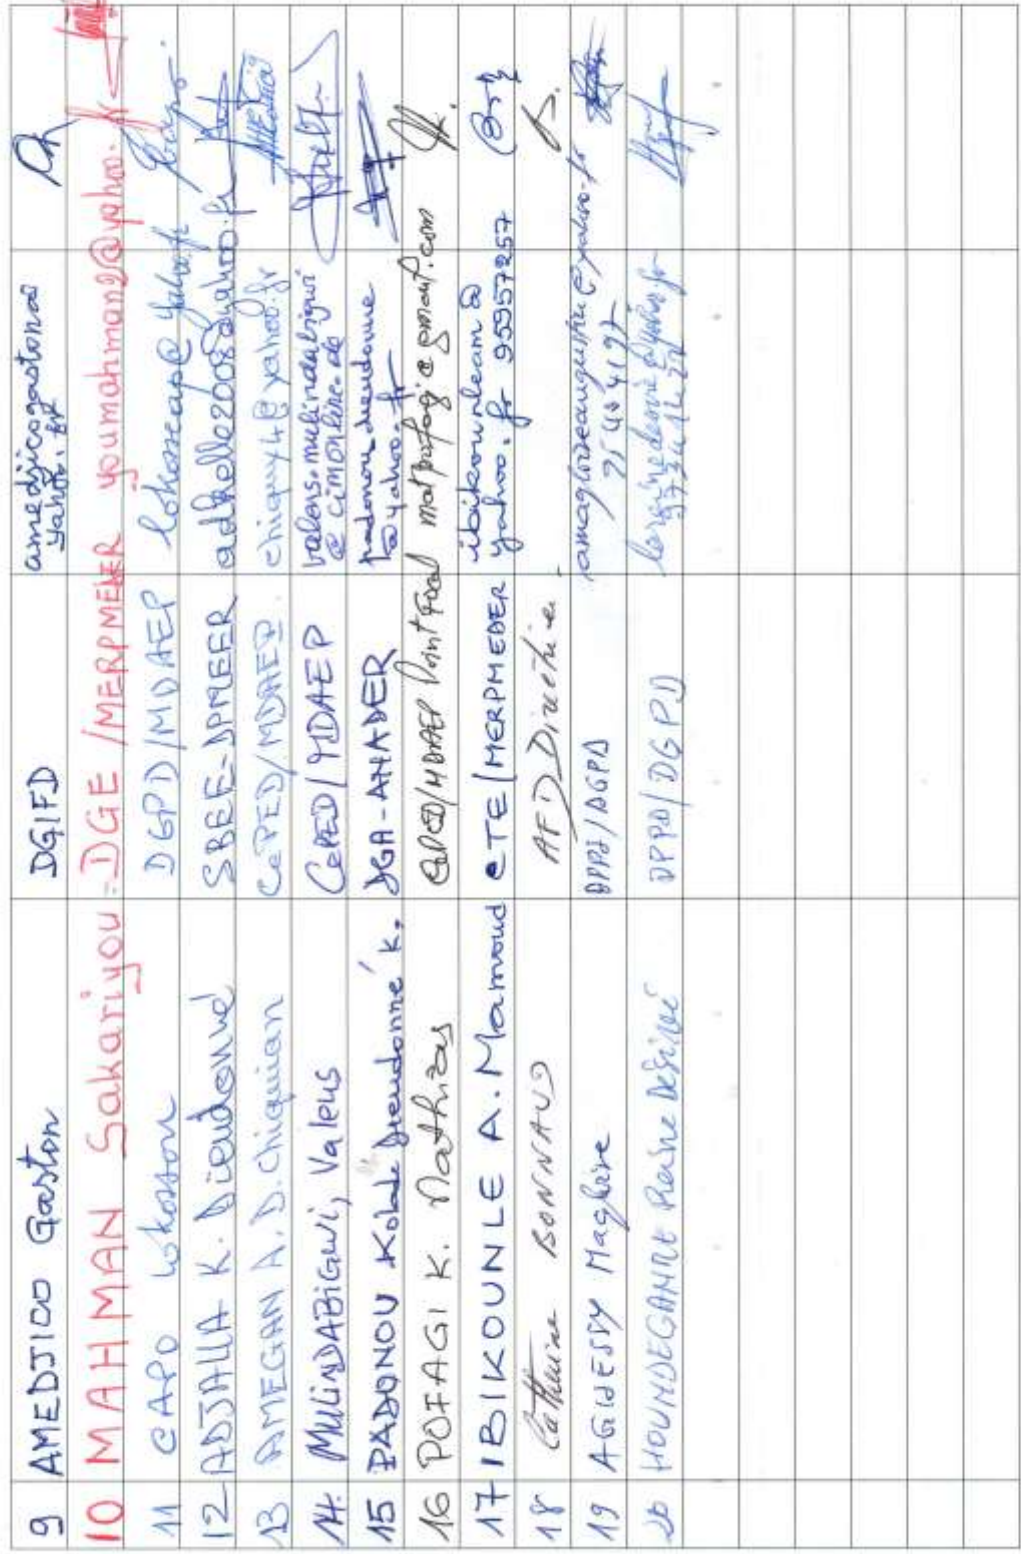 9 AMEDJICO Gaston DGIFD amedjicogaston@
yahoo.fr
10 MAHMAN Sakariyou DGE/MERPMEDER youmahman2@yahoo.fr
11 CAPO Lokossou DGPD/MDAEP lokosscap@yahoo.fr
12 ADJALLA K. Dieudonné SBEE-DPMEER adkelle2008@yahoo.fr
13 AMEGAN A.D. Chiquian CePED/MDAEP. chiquy4@yahoo.fr
14. MULINDABIGWI, Valens CePED/MDAEP valens.mulindabigwi
@cimonline.de
15 PADONOU Kolade Dieudonné K. DGA-ANADER padonoudieudonne
@yahoo.fr
16 POFAGI K. Mathias MDAEP Point Focal matpofagi@gmail.com
17 IBIKOUNLE A. Mamoud CTE/MERPMEDER ibikounleam@
yahoo.fr 95957257
18 Catherine BONNAUD AFD Directrice
19 AGUESSY Magloire DPPD/DGPD amagloireaugustin@yahoo.fr
20 HOUNDEGANME Pierre Désiré DPPD/DGPD